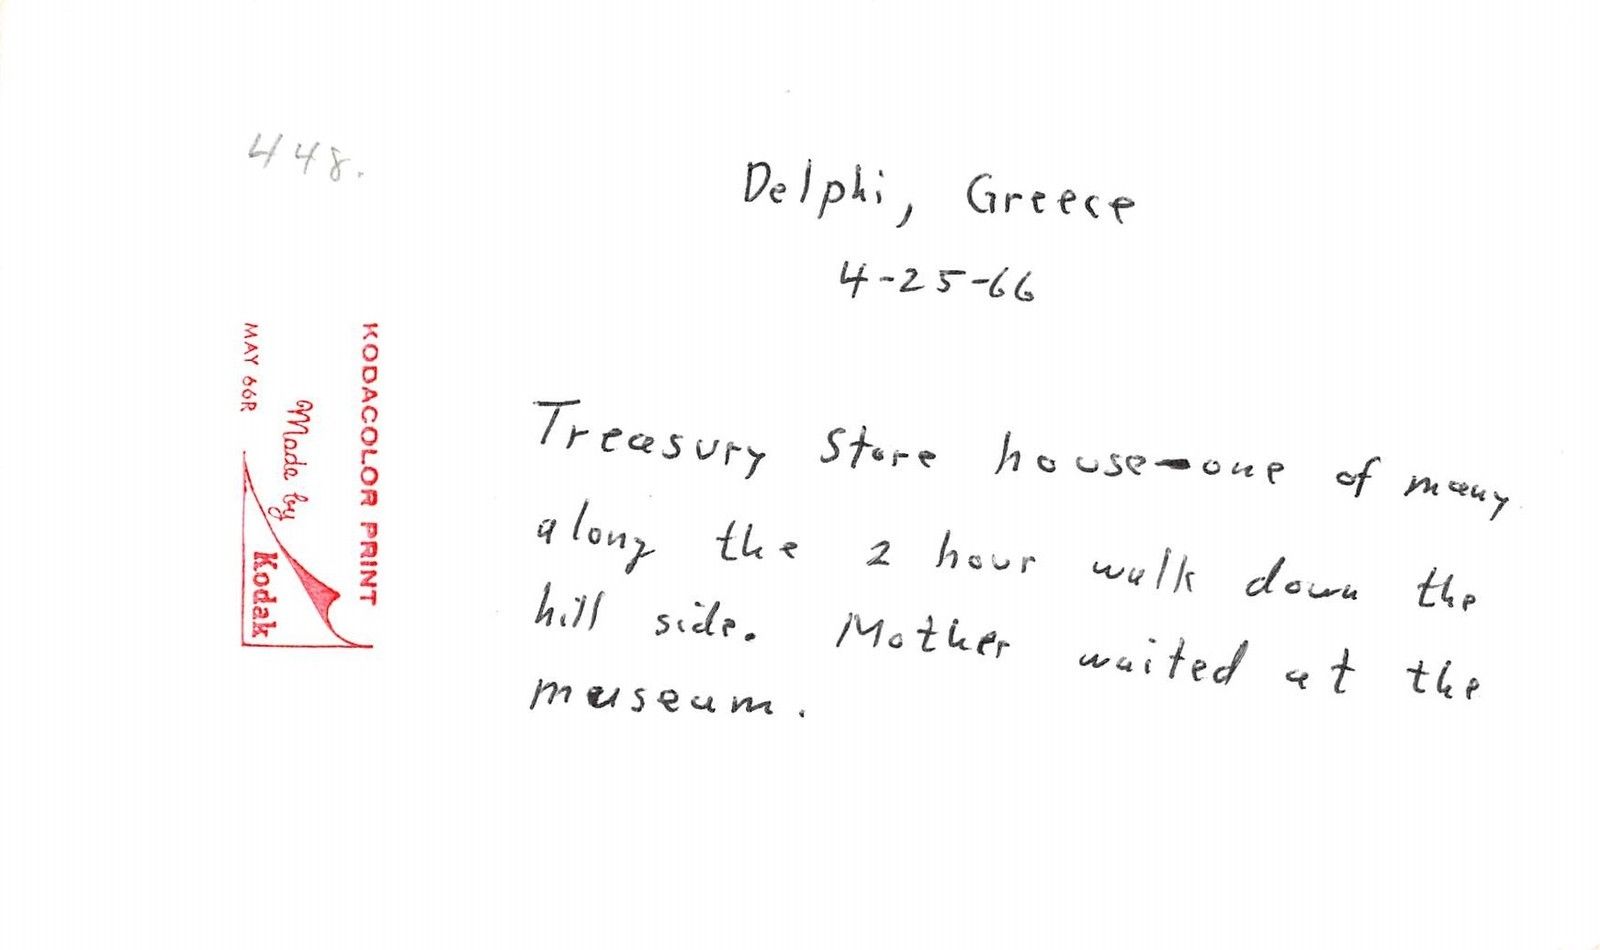 448.
Delphi, Greece
4-25-66
KODACOLOR PRINT
Made by
Kodak
MAY 66R
Treasury Store house-one of many
along the 2 hour walk down the
hill side. Mother waited at the
museum.